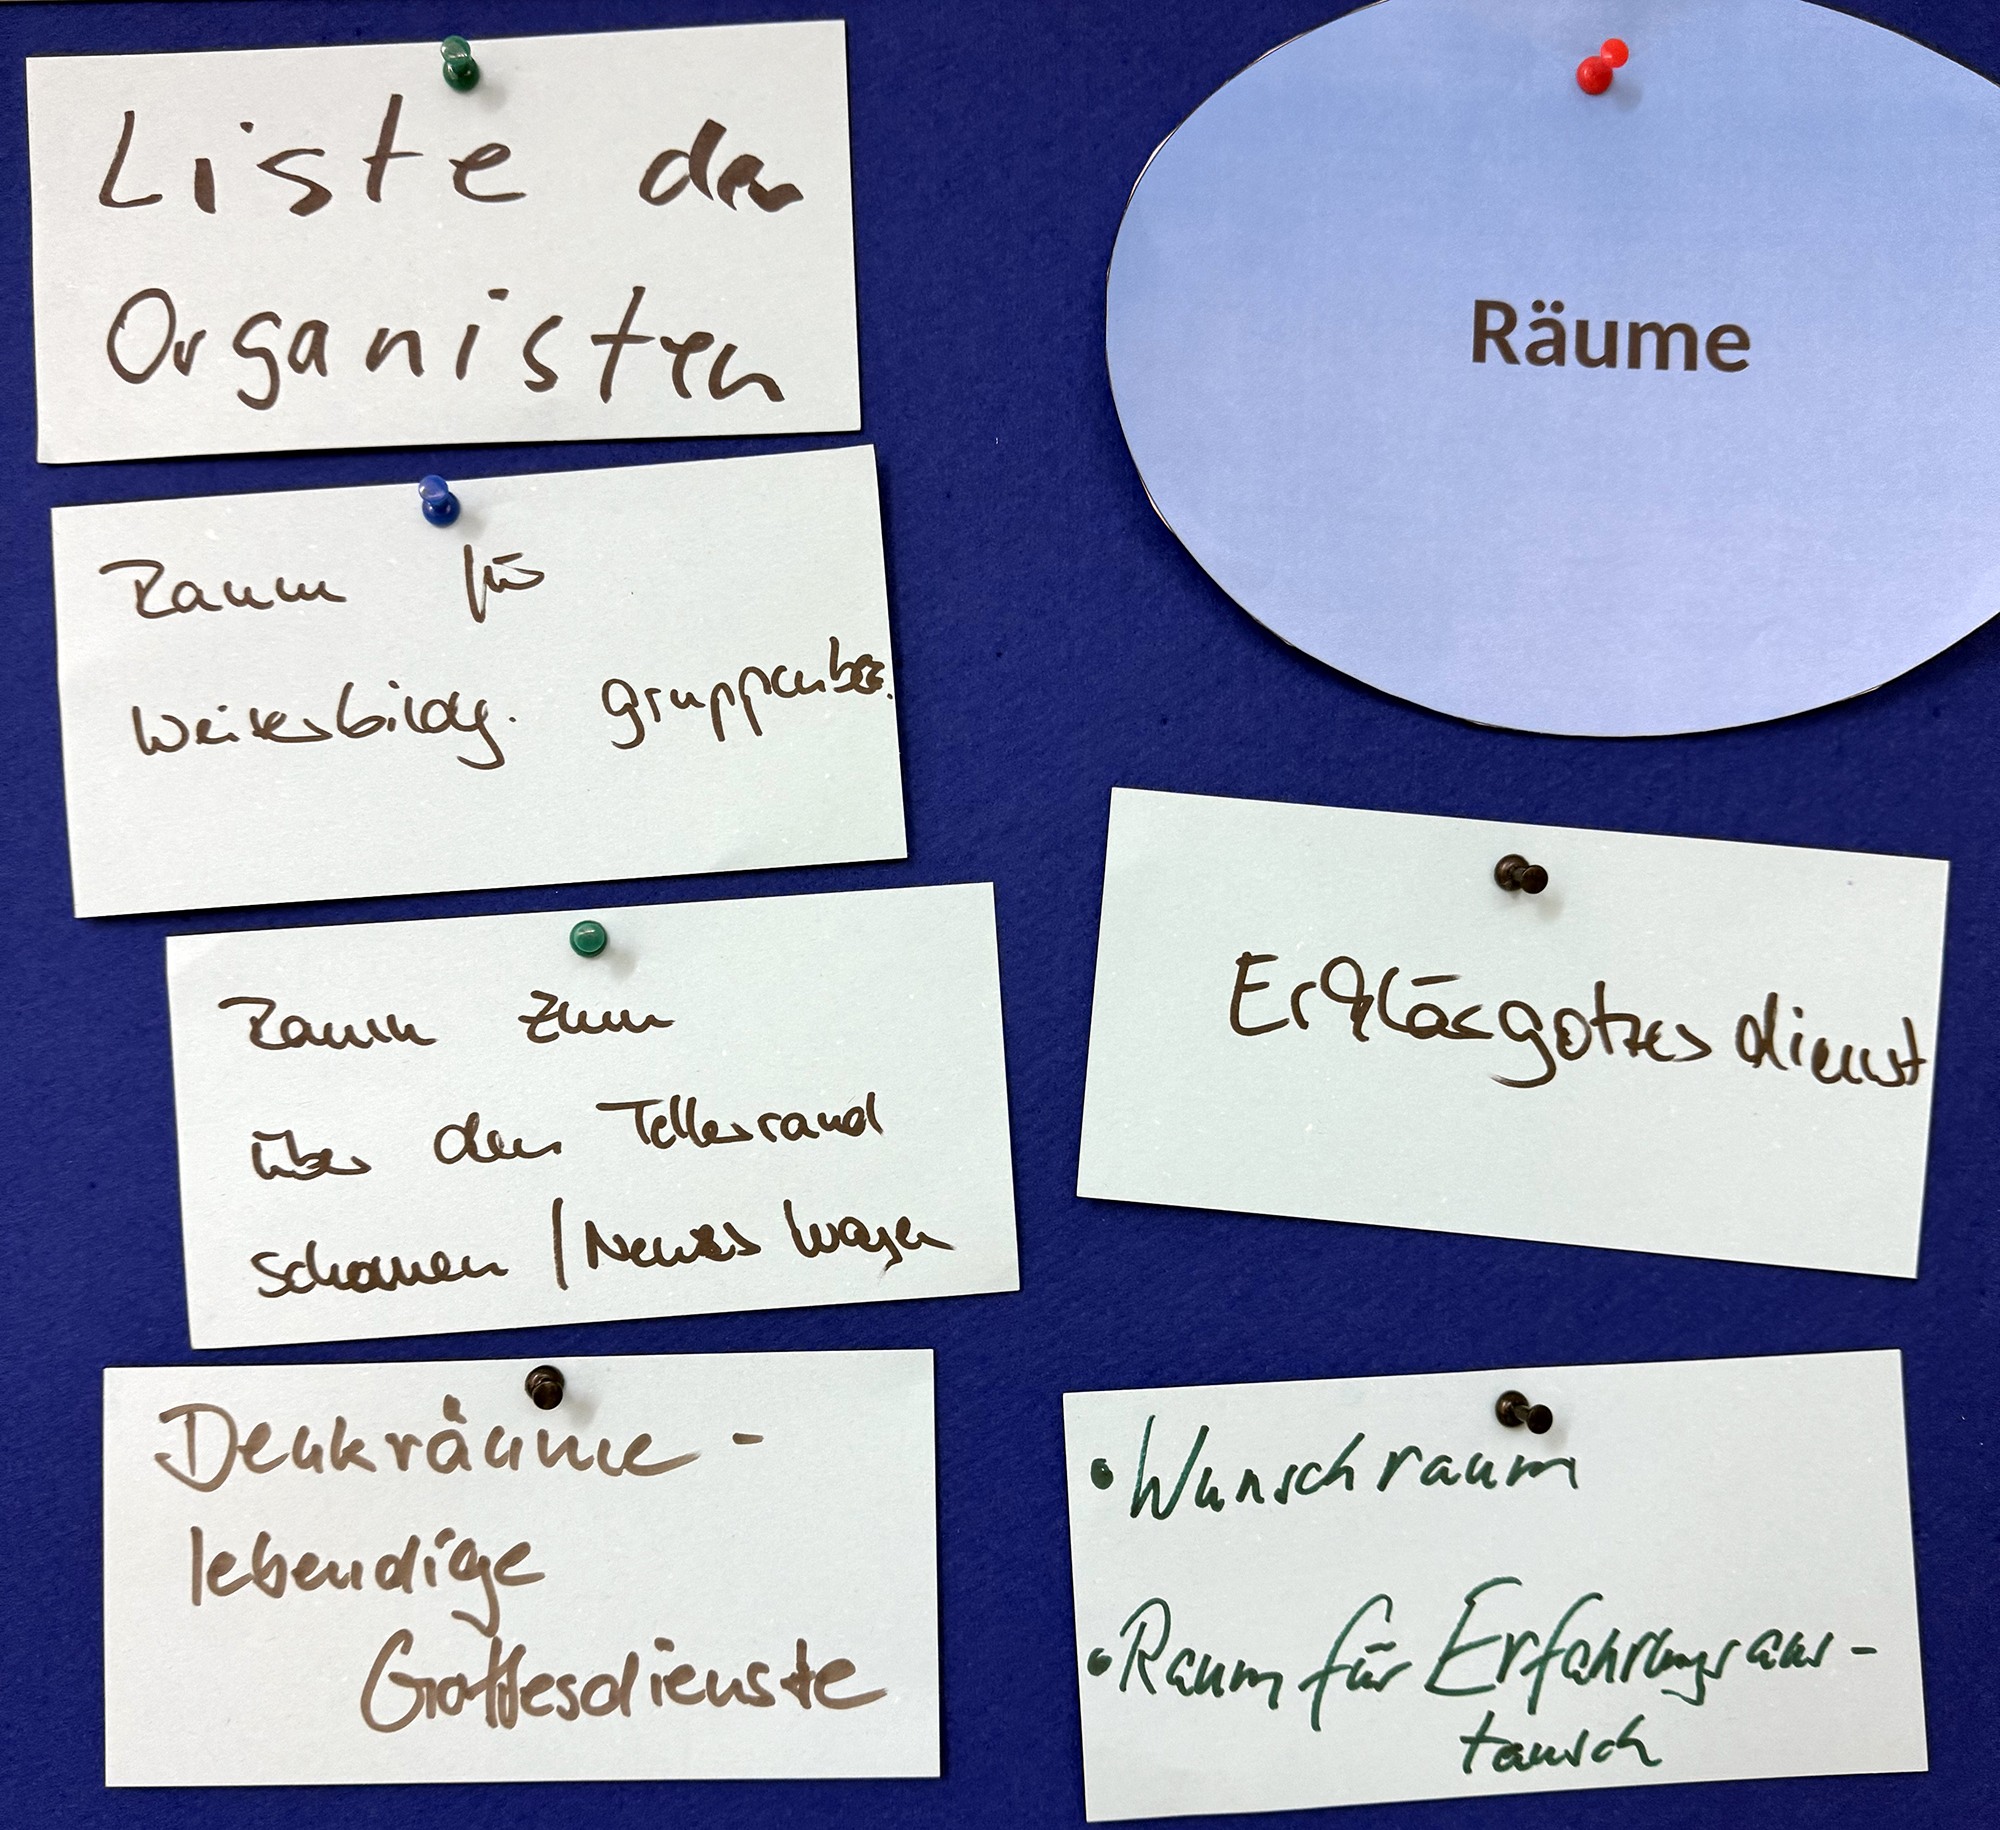 Liste der
Organisten
Räume
Raum für
Weiterbildg. gruppenbez.
Raum zum
über den Tellerrand
schauen / Neues wagen
Erklärgottesdienst
Denkräume -
lebendige
Gottesdienste
• Wunschraum
• Raum für Erfahrungsaus-
tausch